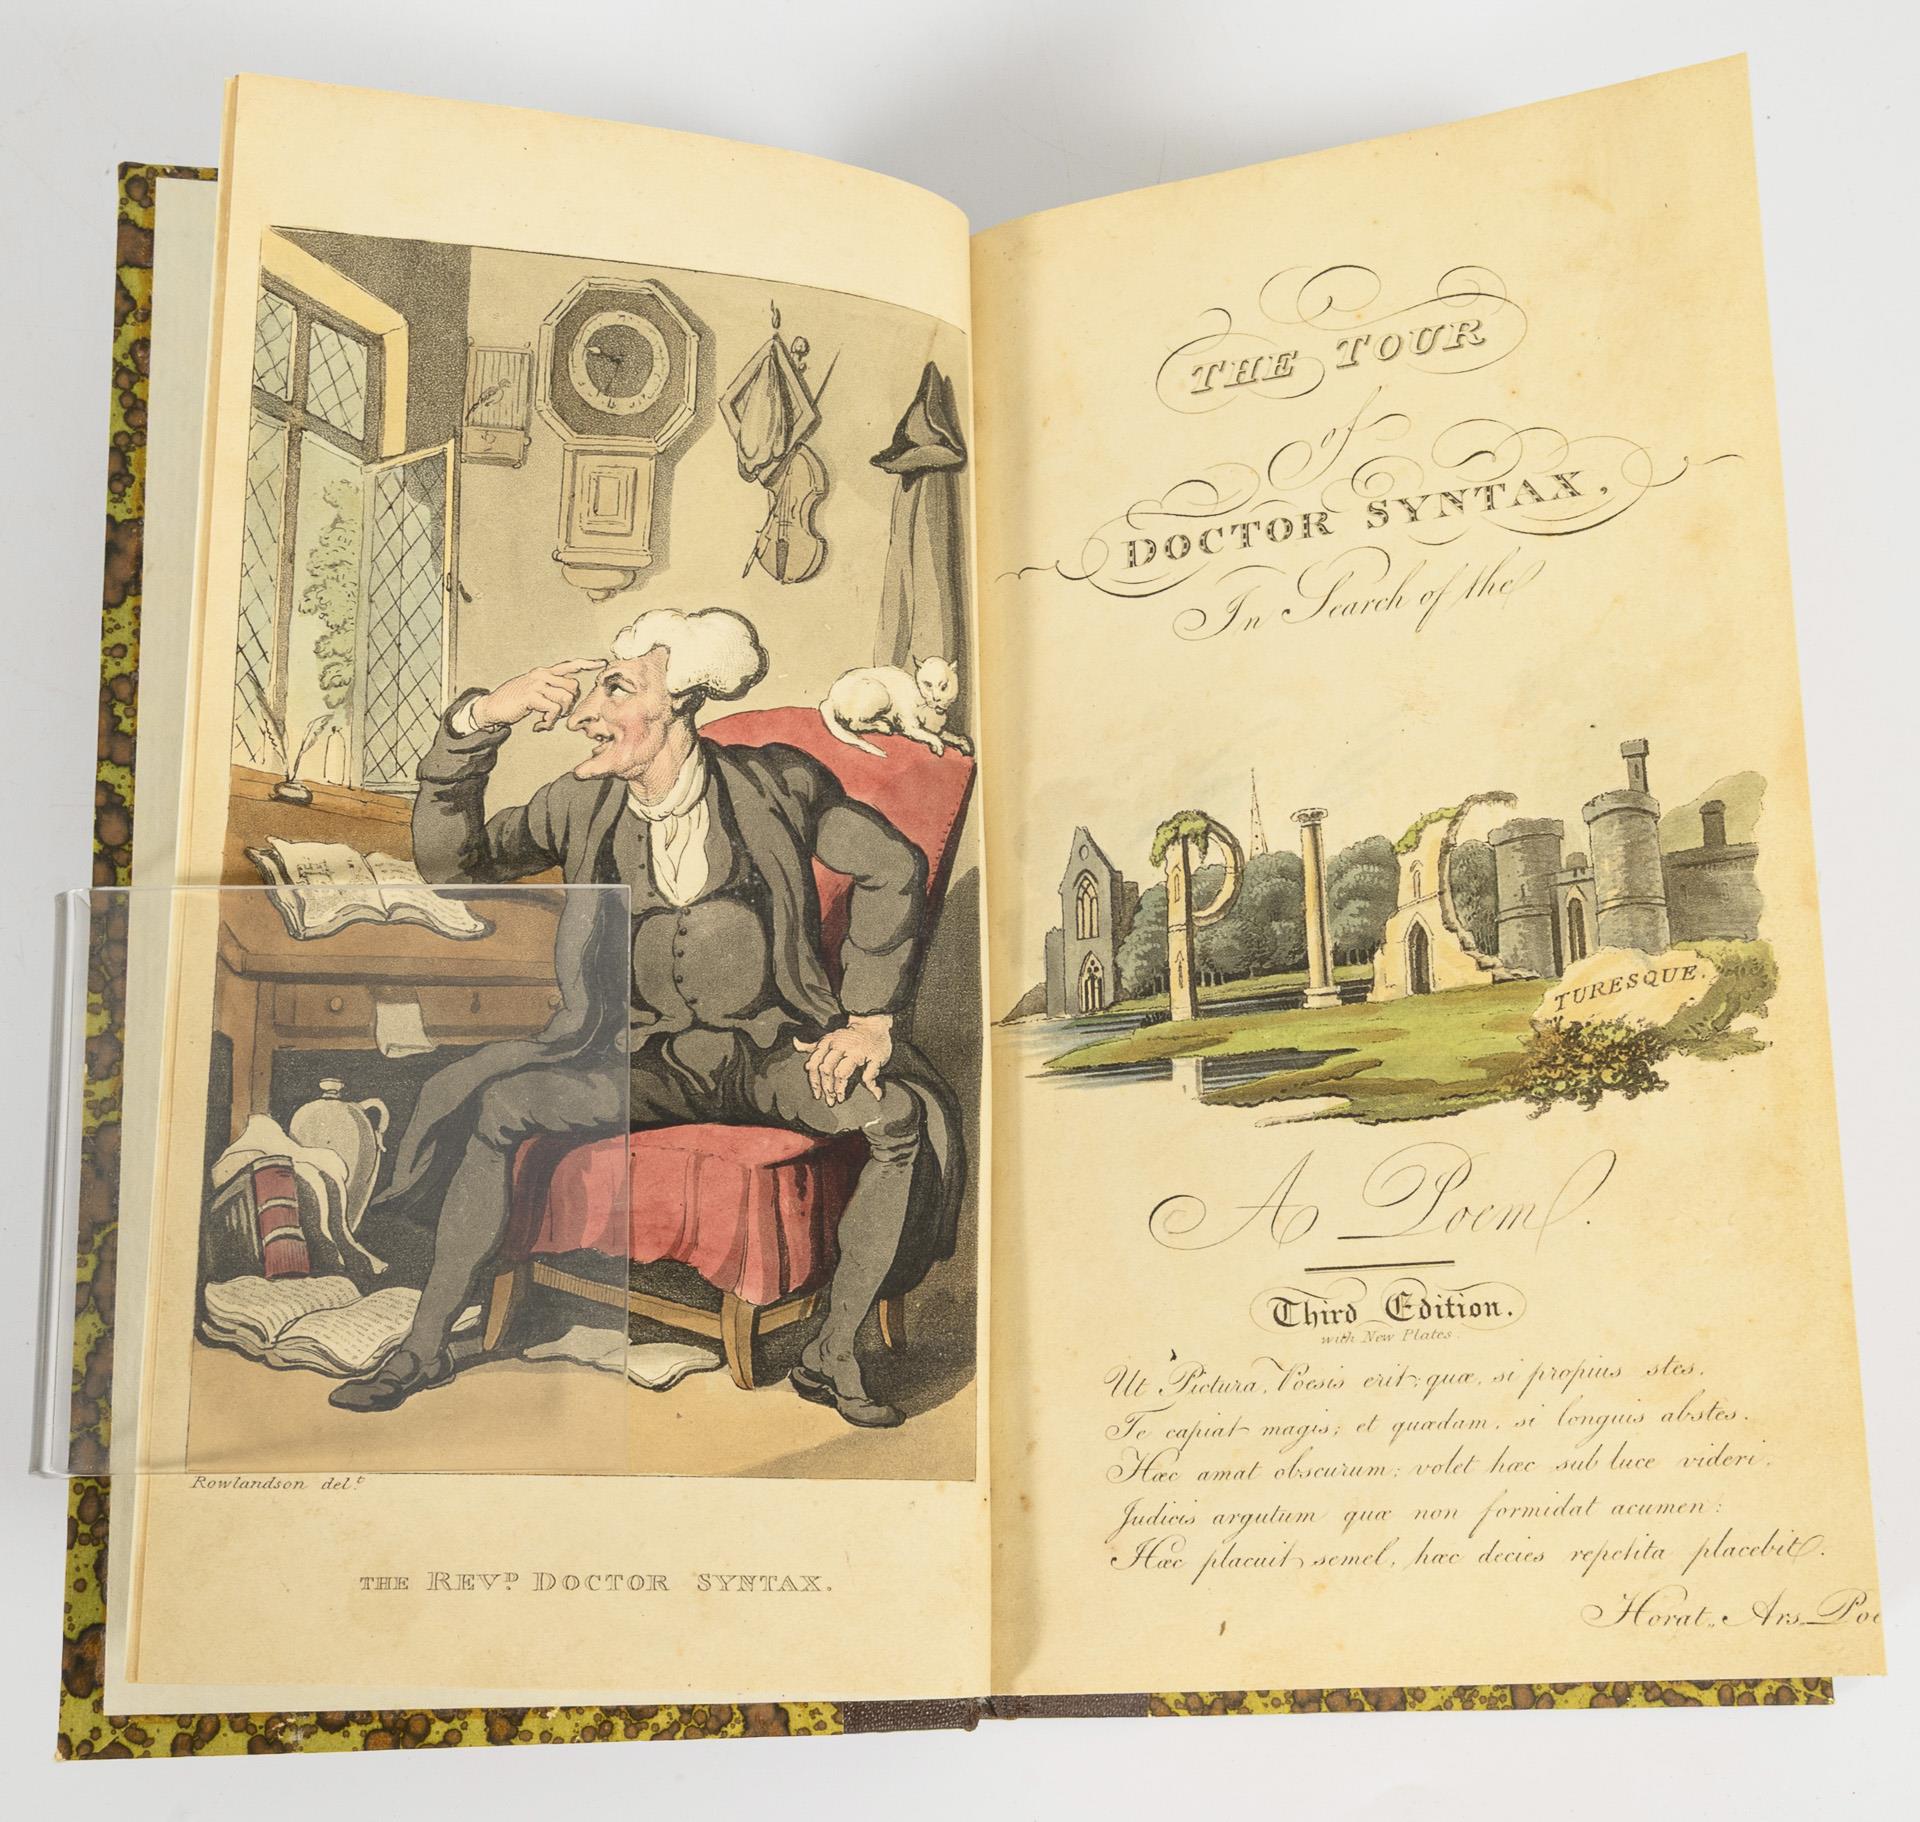 Rowlandson del.t
THE REVD. DOCTOR SYNTAX.
THE TOUR
of
DOCTOR SYNTAX,
In Search of the
PIC
TURESQUE.
A Poem.
Third Edition.
with New Plates.
Ut Pictura, Poesis erit; quæ, si propius stes,
Te capiat magis; et quædam, si longuis abstes.
Hæc amat obscurum; volet hæc sub luce videri,
Judicis argutum quæ non formidat acumen:
Hæc placuit semel, hæc decies repetita placebit.
Horat. Ars Poe